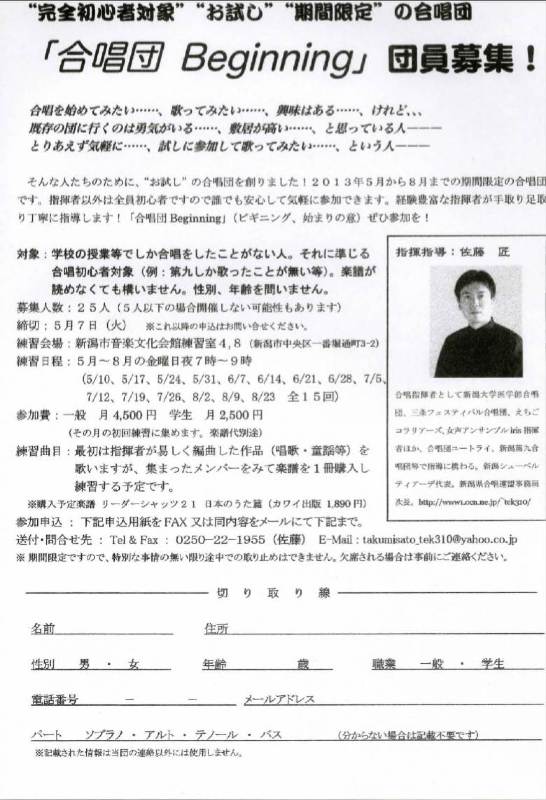 “完全初心者対象”“お試し”“期間限定”の合唱団
「合唱団 Beginning」団員募集！
合唱を始めてみたい……、歌ってみたい……、興味はある……、けれど、、、
既存の団に行くのは勇気がいる……、敷居が高い……、と思っている人―――
とりあえず気軽に……、試しに参加して歌ってみたい……、という人―――
そんな人たちのために、“お試し”の合唱団を創りました！２０１３年５月から８月までの期間限定の合唱団
です。指揮者以外は全員初心者ですので誰でも安心して気軽に参加できます。経験豊富な指揮者が手取り足取
り丁寧に指導します！「合唱団Beginning」（ビギニング、始まりの意）ぜひ参加を！
対象：学校の授業等でしか合唱をしたことがない人。それに準じる
合唱初心者対象（例：第九しか歌ったことが無い等）。楽譜が
読めなくても構いません。性別、年齢を問いません。
募集人数：２５人（５人以下の場合開催しない可能性もあります）
締切：５月７日（火） ※これ以降の申込はお問い合せください。
練習会場：新潟市音楽文化会館練習室４,８（新潟市中央区一番堀通町3-2）
練習日程：５月～８月の金曜日夜７時～９時
(5/10、5/17、5/24、5/31、6/7、6/14、6/21、6/28、7/5、
7/12、7/19、7/26、8/2、8/9、8/23 全１５回)
参加費：一般 月 4,500円 学生 月 2,500円
（その月の初回練習に集めます。楽譜代別途）
練習曲目：最初は指揮者が易しく編曲した作品（唱歌・童謡等）を
歌いますが、集まったメンバーをみて楽譜を１冊購入し
練習する予定です。
※購入予定楽譜 リーダーシャッツ２１ 日本のうた篇（カワイ出版 1,890円）
指揮指導：佐藤 匠
合唱指揮者として新潟大学医学部合唱
団、三条フェスティバル合唱団、えちご
コラリアーズ、女声アンサンブル iris 指揮
者ほか、合唱団ユートライ、新潟第九合
唱団等で指導に携わる。新潟シューベル
ティアーデ代表。新潟県合唱連盟事務局
次長。http://www1.ocn.ne.jp/~tek310/
参加申込：下記申込用紙をFAX又は同内容をメールにて下記まで。
送付・問合せ先：Tel & Fax：0250-22-1955（佐藤） E-Mail：takumisato_tek310@yahoo.co.jp
※ 期間限定ですので、特別な事情の無い限り途中での取り止めはできません。欠席される場合は事前にご連絡ください。
切り取り線
名前 住所
性別 男・女 年齢 歳 職業 一般・学生
電話番号 － － メールアドレス
パート ソプラノ・アルト・テノール・バス （分からない場合は記載不要です）
※記載された情報は当団の連絡以外には使用しません。